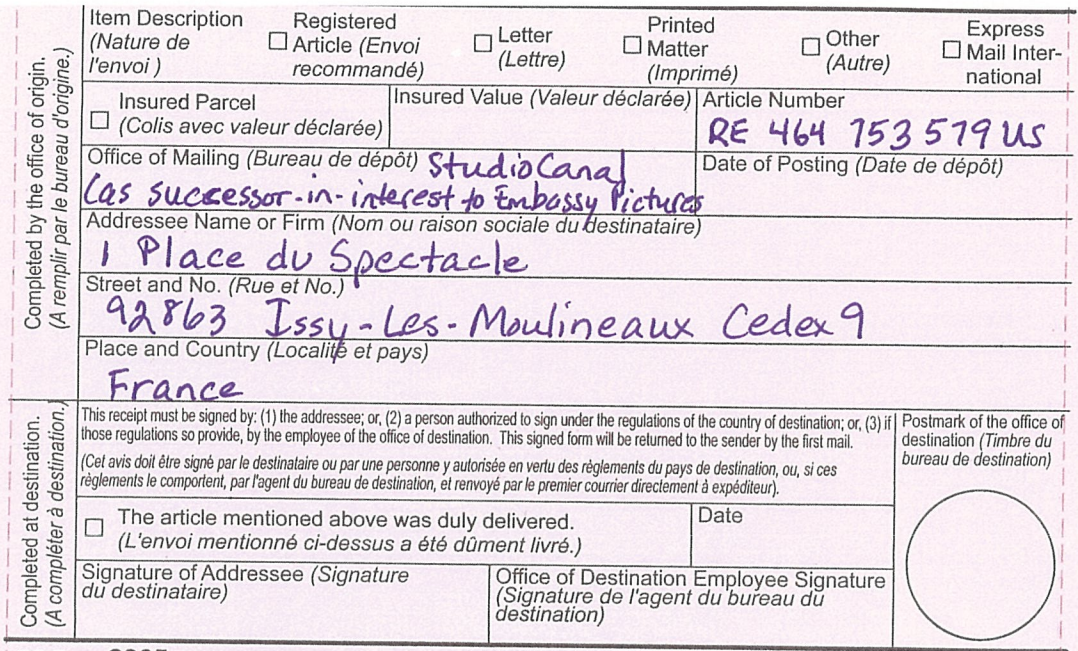 Completed by the office of origin.
(A remplir par le bureau d'origine.)
Item Description
(Nature de
l'envoi )
Registered
Article (Envoi
recommandé)
Letter
(Lettre)
Printed
Matter
(Imprimé)
Other
(Autre)
Express
Mail Inter-
national
Insured Parcel
(Colis avec valeur déclarée)
Insured Value (Valeur déclarée)
Article Number
RE 464 753 579 US
Office of Mailing (Bureau de dépôt) StudioCanal
(as successor-in-interest to Embassy Pictures
Date of Posting (Date de dépôt)
Addressee Name or Firm (Nom ou raison sociale du destinataire)
1 Place du Spectacle
Street and No. (Rue et No.)
92863 Issy-Les-Moulineaux Cedex 9
Place and Country (Localité et pays)
France
Completed at destination.
(A compléter à destination.)
This receipt must be signed by: (1) the addressee; or, (2) a person authorized to sign under the regulations of the country of destination; or, (3) if
those regulations so provide, by the employee of the office of destination. This signed form will be returned to the sender by the first mail.
(Cet avis doit être signé par le destinataire ou par une personne y autorisée en vertu des règlements du pays de destination, ou, si ces
règlements le comportent, par l'agent du bureau de destination, et renvoyé par le premier courrier directement à expéditeur).
Postmark of the office of
destination (Timbre du
bureau de destination)
The article mentioned above was duly delivered.
(L'envoi mentionné ci-dessus a été dûment livré.)
Date
Signature of Addressee (Signature
du destinataire)
Office of Destination Employee Signature
(Signature de l'agent du bureau du
destination)